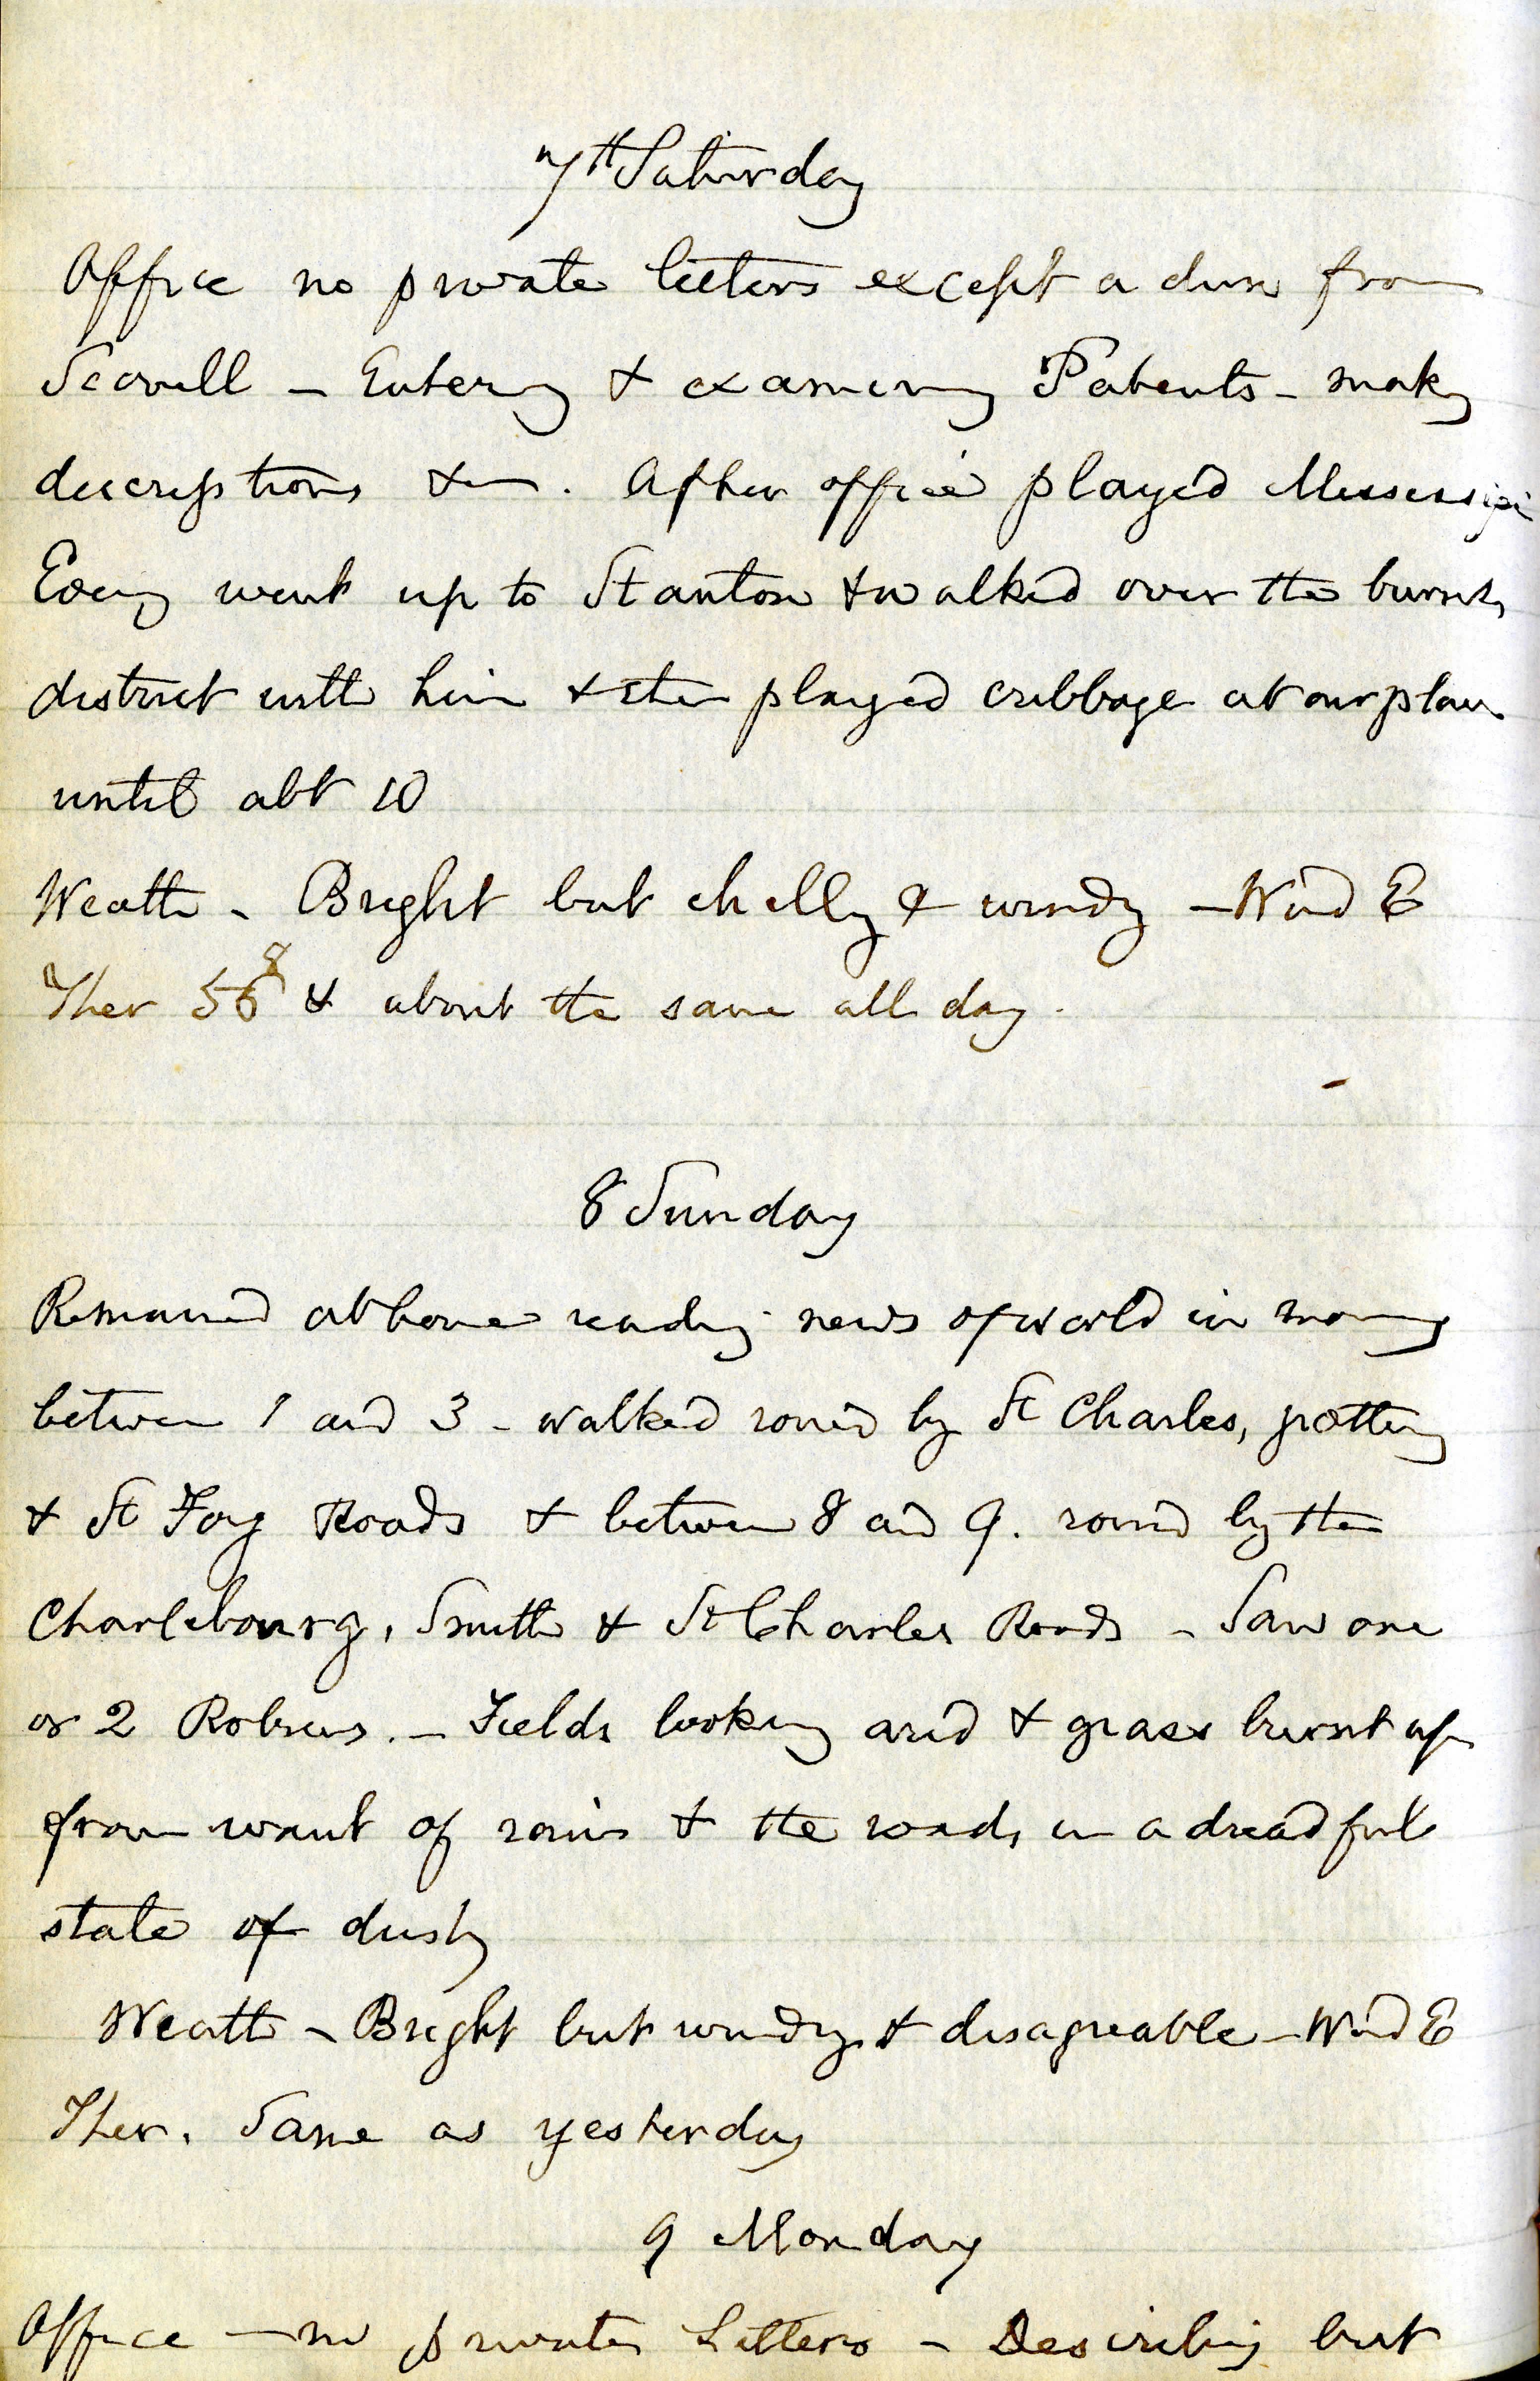 7th Saturday
Office no private letters except a dun from
Scovell - Entering & examining Patents - makg
descriptions &c. After office played Mississipi
Eveng went up to Stanton & walked over the burnt
district with him & then played cribbage at our place
until abt 10
Weath - Bright but chilly & windy - Wind E
Ther 56 & about the same all day.
8 Sunday
Remained at home reading news of world in morng
between 1 and 3 - walked round by St Charles, pottery
& St Foy Roads & between 8 and 9. round by the
Charlebourg, Smith & St Charles Roads - Saw one
or 2 Robins. - Fields looking arid & grass burnt up
from want of rain & the roads in a dreadful
state of dust
Weath - Bright but windy & disagreable - Wind E
Ther. Same as yesterday
9 Monday
Office - no private Letters - Describing but